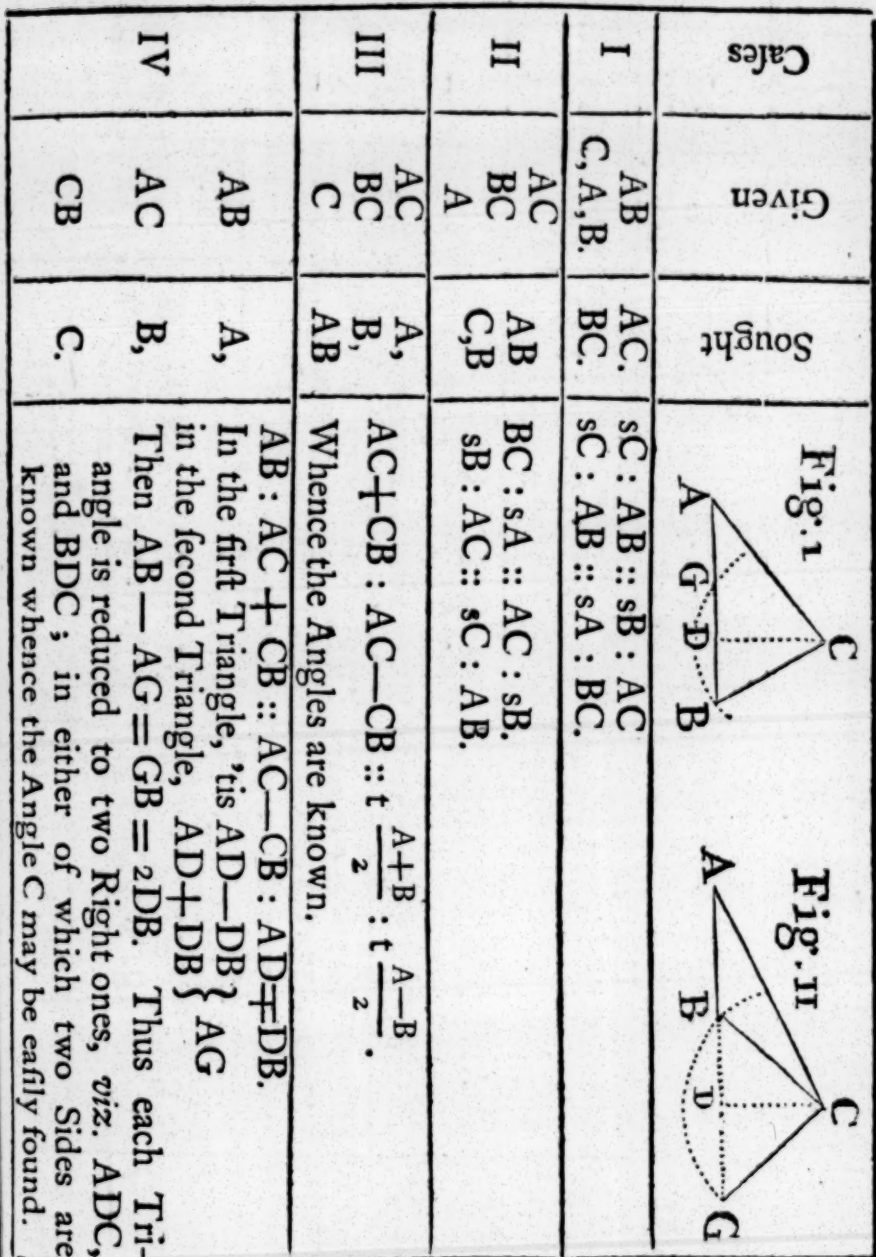 Caſes
Given
Sought
Fig. 1
A
G
D
B
C
Fig. II
A
B
D
G
C
I
AB
C, A, B.
AC.
BC.
sC : AB :: sB : AC
sC : AB :: sA : BC.
II
AC
BC
A
AB
C,B
BC : sA :: AC : sB.
sB : AC :: sC : AB.
III
AC
BC
C
A,
B,
AB
AC+CB : AC—CB :: t A+B/2 : t A—B/2 .
Whence the Angles are known.
IV
AB
AC
CB
A,
B,
C.
AB : AC + CB :: AC—CB : AD∓DB.
In the firſt Triangle, 'tis AD—DB } AG
in the ſecond Triangle, AD+DB
Then AB — AG = GB = 2DB. Thus each Tri-
angle is reduced to two Right ones, viz. ADC,
and BDC ; in either of which two Sides are
known whence the Angle C may be eaſily found.